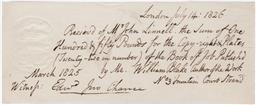 London July 14. 1826
Receivd of Mr John Linnell, the Sum of One
Hundred & fifty Pounds for the Copy-right & Plates
(Twenty-two in number) of the Book of Job. Publishd
March 1825 by Me. William Blake Author of the Work
Witness: Edwd Jno Chance No 3 Fountain Court Strand